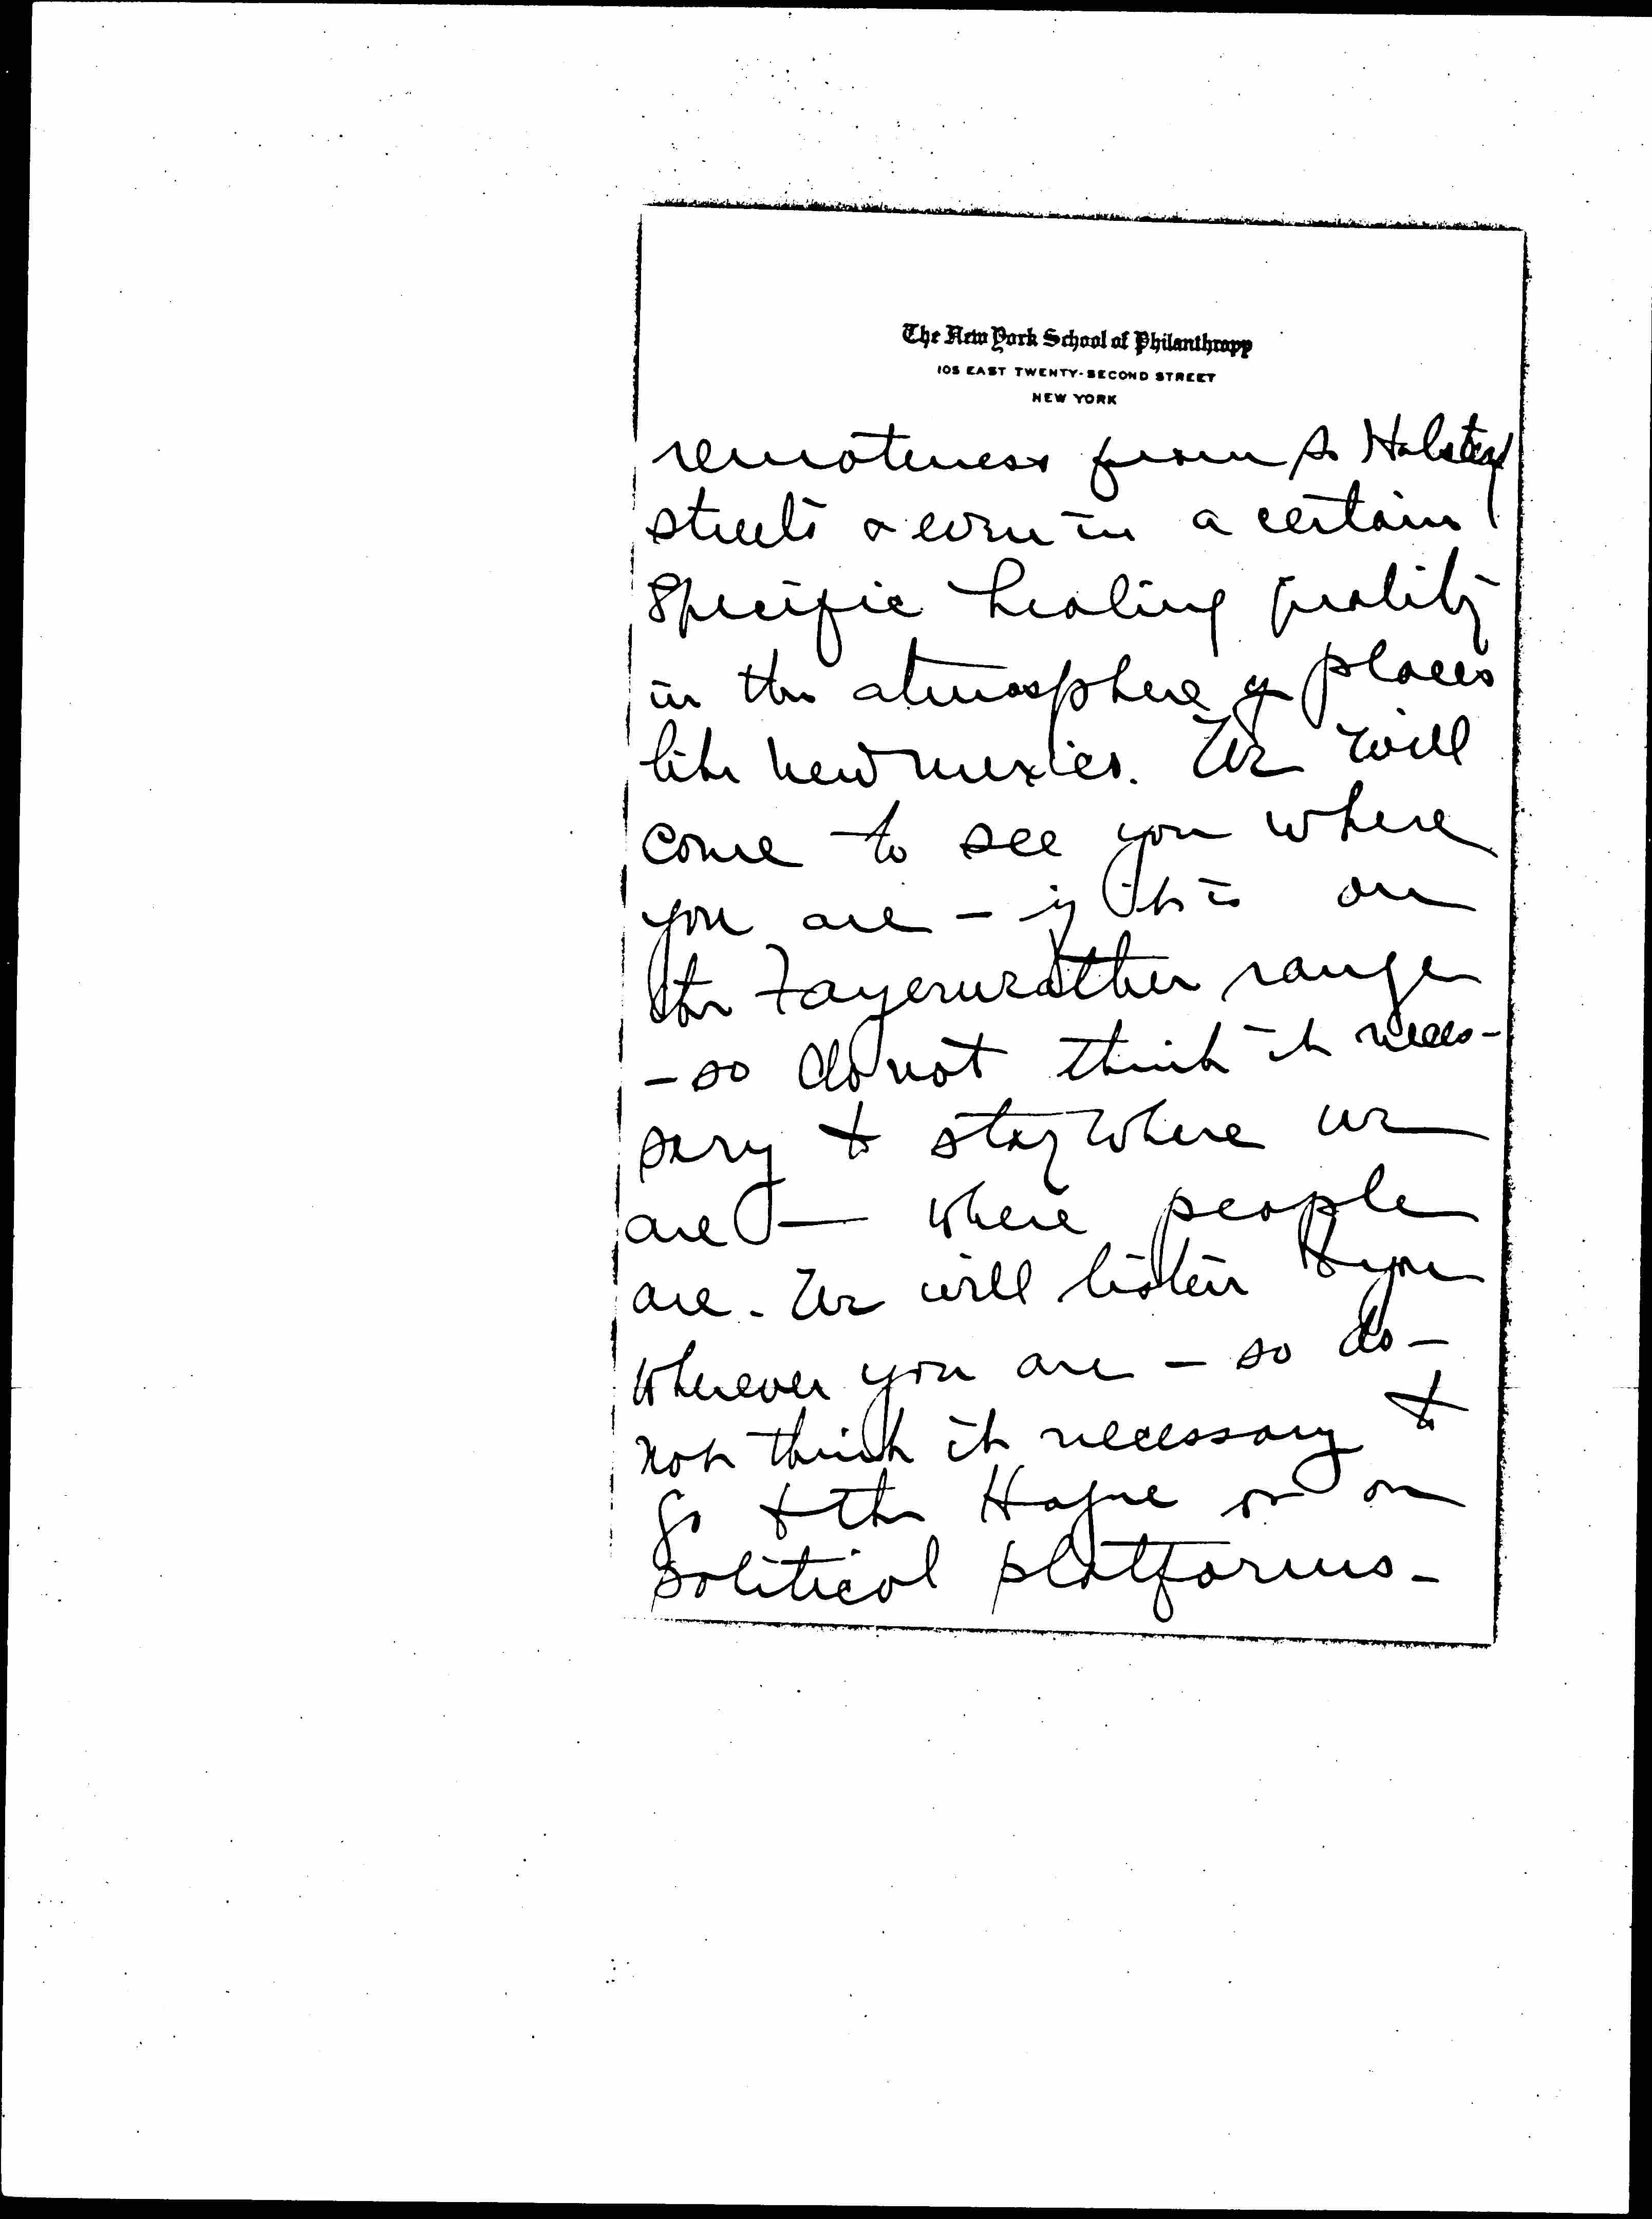 The New York School of Philanthropy
105 EAST TWENTY-SECOND STREET
NEW YORK
remoteness from So Halsted
streets & even in a certain
specific healing quality
in the atmosphere of places
like New Mexico. We will
come to see you where
you are - if it is on
the Fayerweather range
- so do not think it neces-
sary to stay where we
are — where people
are. We will listen to you
wherever you are - so do -
not think it necessary to
go to the Hague or on
political platforms -